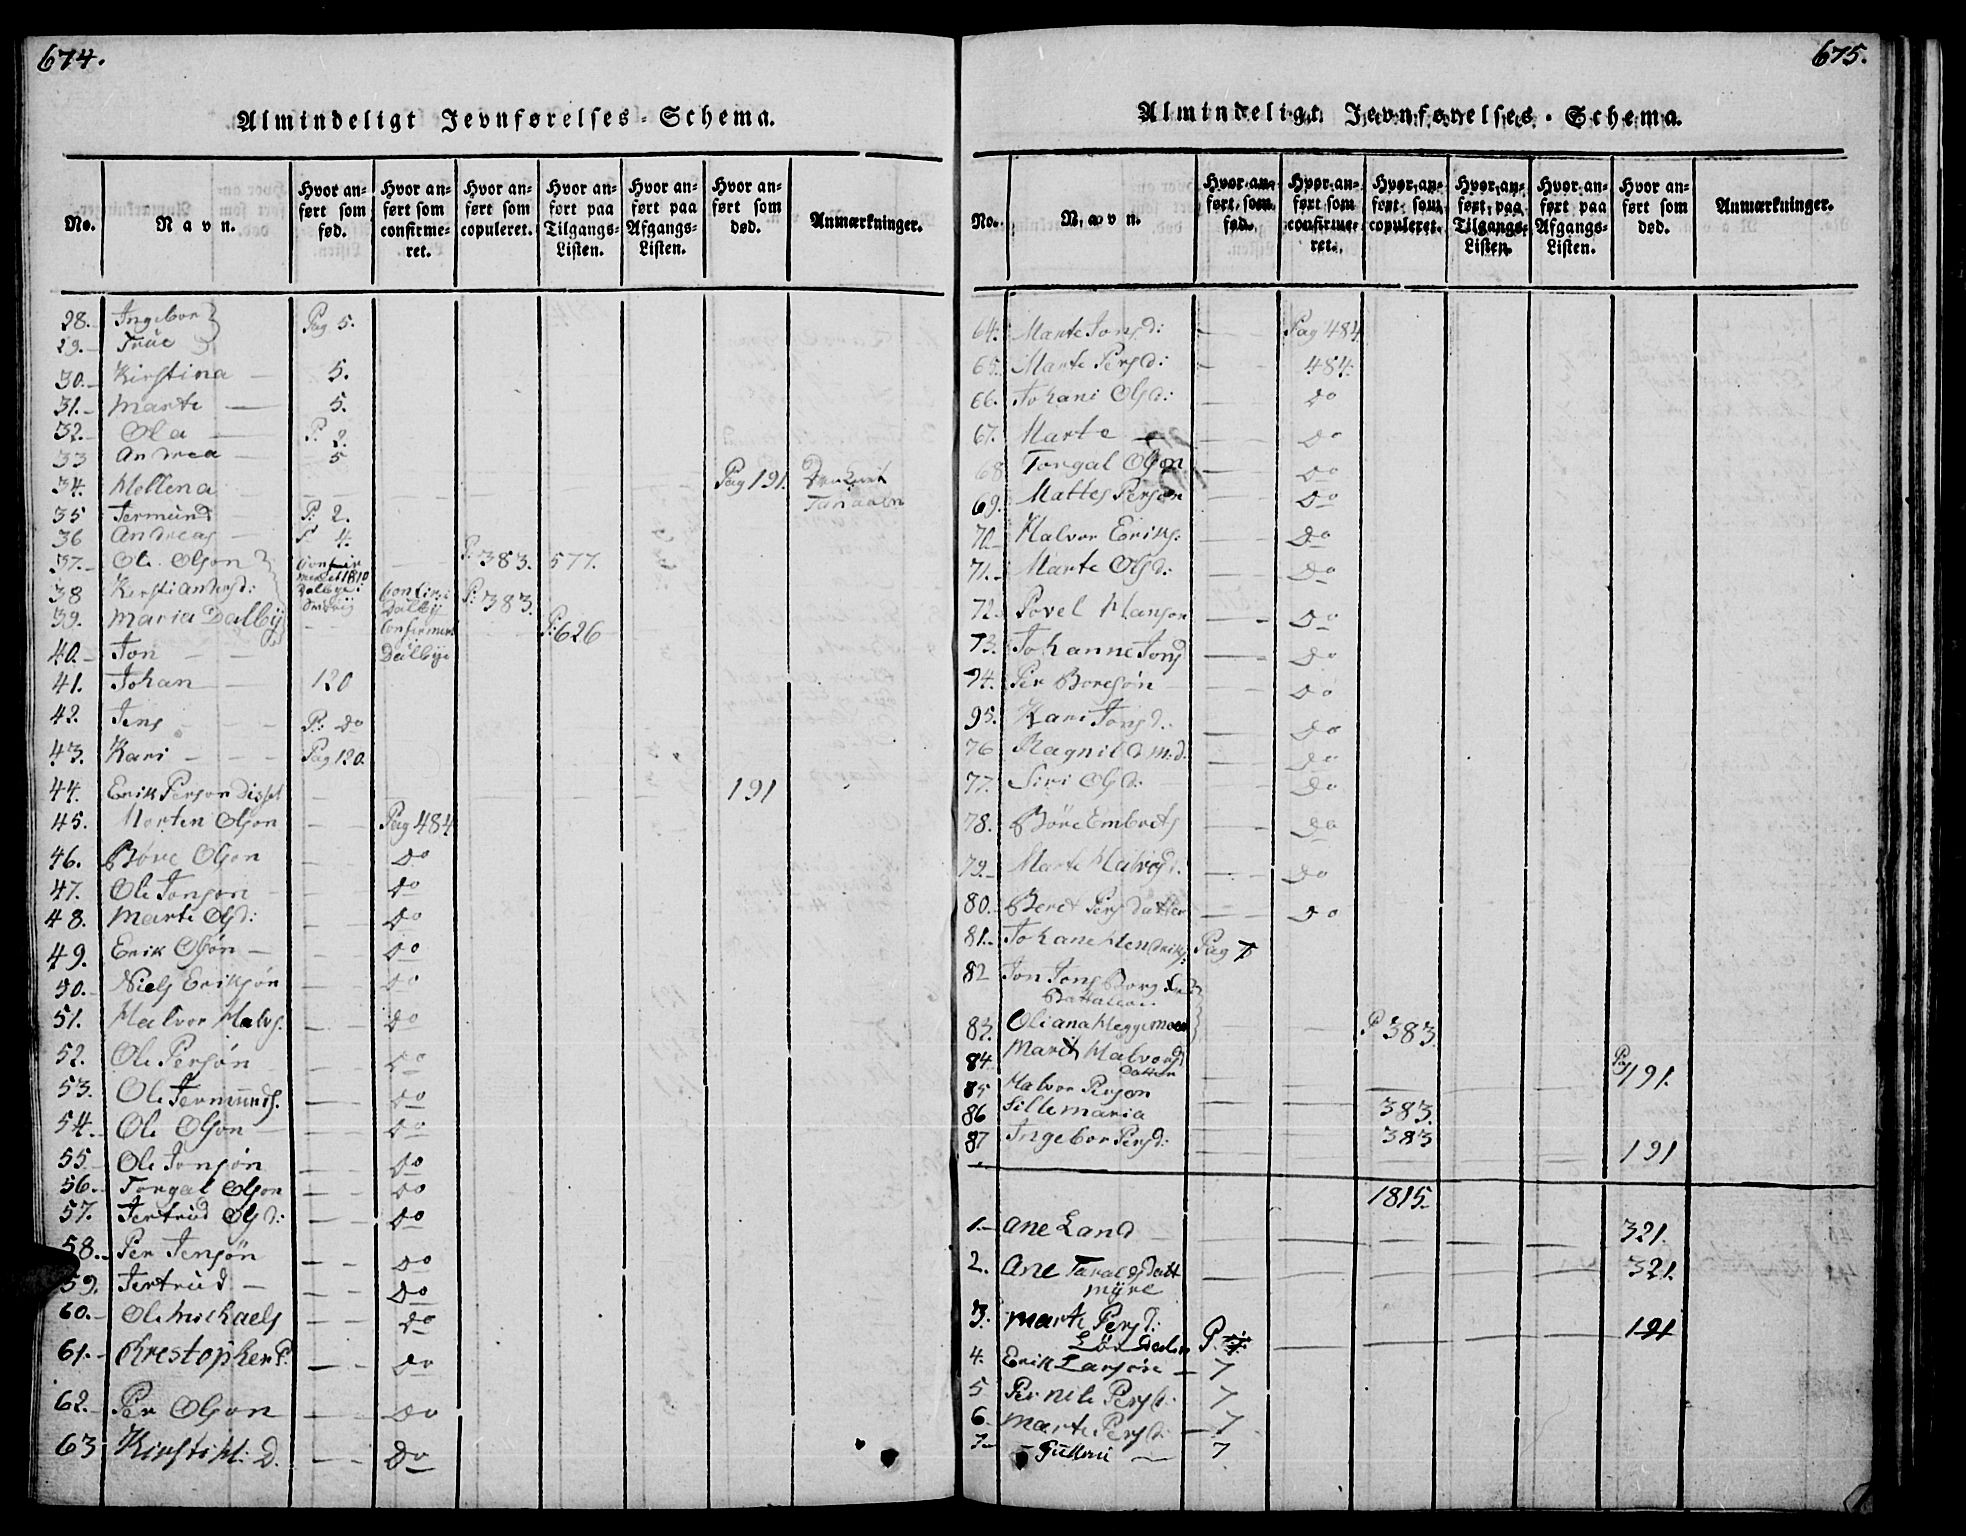 674.
Almindeligt Jevnførelses-Schema.
No. | Navn. | Hvor anført som fød. | Hvor anført som confirmeret. | Hvor anført som copuleret. | Hvor anfort paa Tilgangs-Listen. | Hvor anført paa Afgangs-Listen. | Hvor anført som død. | Anmærkninger.
28. Ingebor Pag 5.
29.
30. Kirstina 5.
31. Marte 5.
32. Ola P. 2.
33 Andrea 5
34. Hellena Pag 191.
35 Jermund P: 2.
36 Andreas P 4.
37. Ole Olson P: 383. 577.
38 Kersti Andersd: P: 383.
39. Maria Dalby P: 626
40. Jon
41. Johan 120
42. Jens P: Do
43. Kari Pag 120.
44. Erik Person 191
45. Morten Olson Pag 484
46. Børe Olson Do
47. Ole Jonson Do
48. Marte Olsd: Do
49. Erik Olsøn Do
50. Niels Eriksøn Do
51. Halvor Halvs. Do
52. Ole Persøn Do
53. Ole Jermunds. Do
54. Ole Olson Do
55. Ole Jonsøn Do
56. Torgal Olson Do
57. Jertrud Olsd: Do
58. Per Jensøn Do
59. Jertrud Do
60. Ole Michaels Do
61. Krestopher P. Do
62. Per Olson Do
63 Kirsti H: D. Do
675.
Almindeligt Jevnførelses-Schema.
No. | Navn. | Hvor anført som fød. | Hvor anført som confirmeret. | Hvor anført som copuleret. | Hvor anført paa Tilgangs-Listen. | Hvor anført paa Afgangs-Listen. | Hvor anført som død. | Anmærkninger.
64. Marte Jonsd: Pag 484
65. Marte Persd: 484.
66. Johani Olsd: Do
67. Marte Do
68 Torgal Olson Do
69. Mattes Person Do
70. Halvor Eriks. Do
71. Marte Olsd: Do
72. Povel Hanson Do
73. Johanne Jonsd Do
74. Per Boresøn Do
95. Kari Jonsd. Do
76 Ragnil A m:d. Do
77. Siri Olsd: Do
78. Böre Embrets Do
79. Marte Halvosd. Do
80. Beret Persdatter Do
81. Johane Hendriks: Pag 7
82 Jon Jons Borg
83. Oliana Heggemoen P 383.
84. Marit Halvorsdatter Pag 191.
85 Halvor Person 383.
86 Sillemaria 383
87 Ingebor Persd: 191
1815.
1. Ane Land 321.
2. Ane Taraldsdatt
myre 321.
3. Marte Persd: P. 191
4. Erik Larsøn 7
5 Pernele Persd: 7
6 Marte Persd: 7
7 Gulleni 7